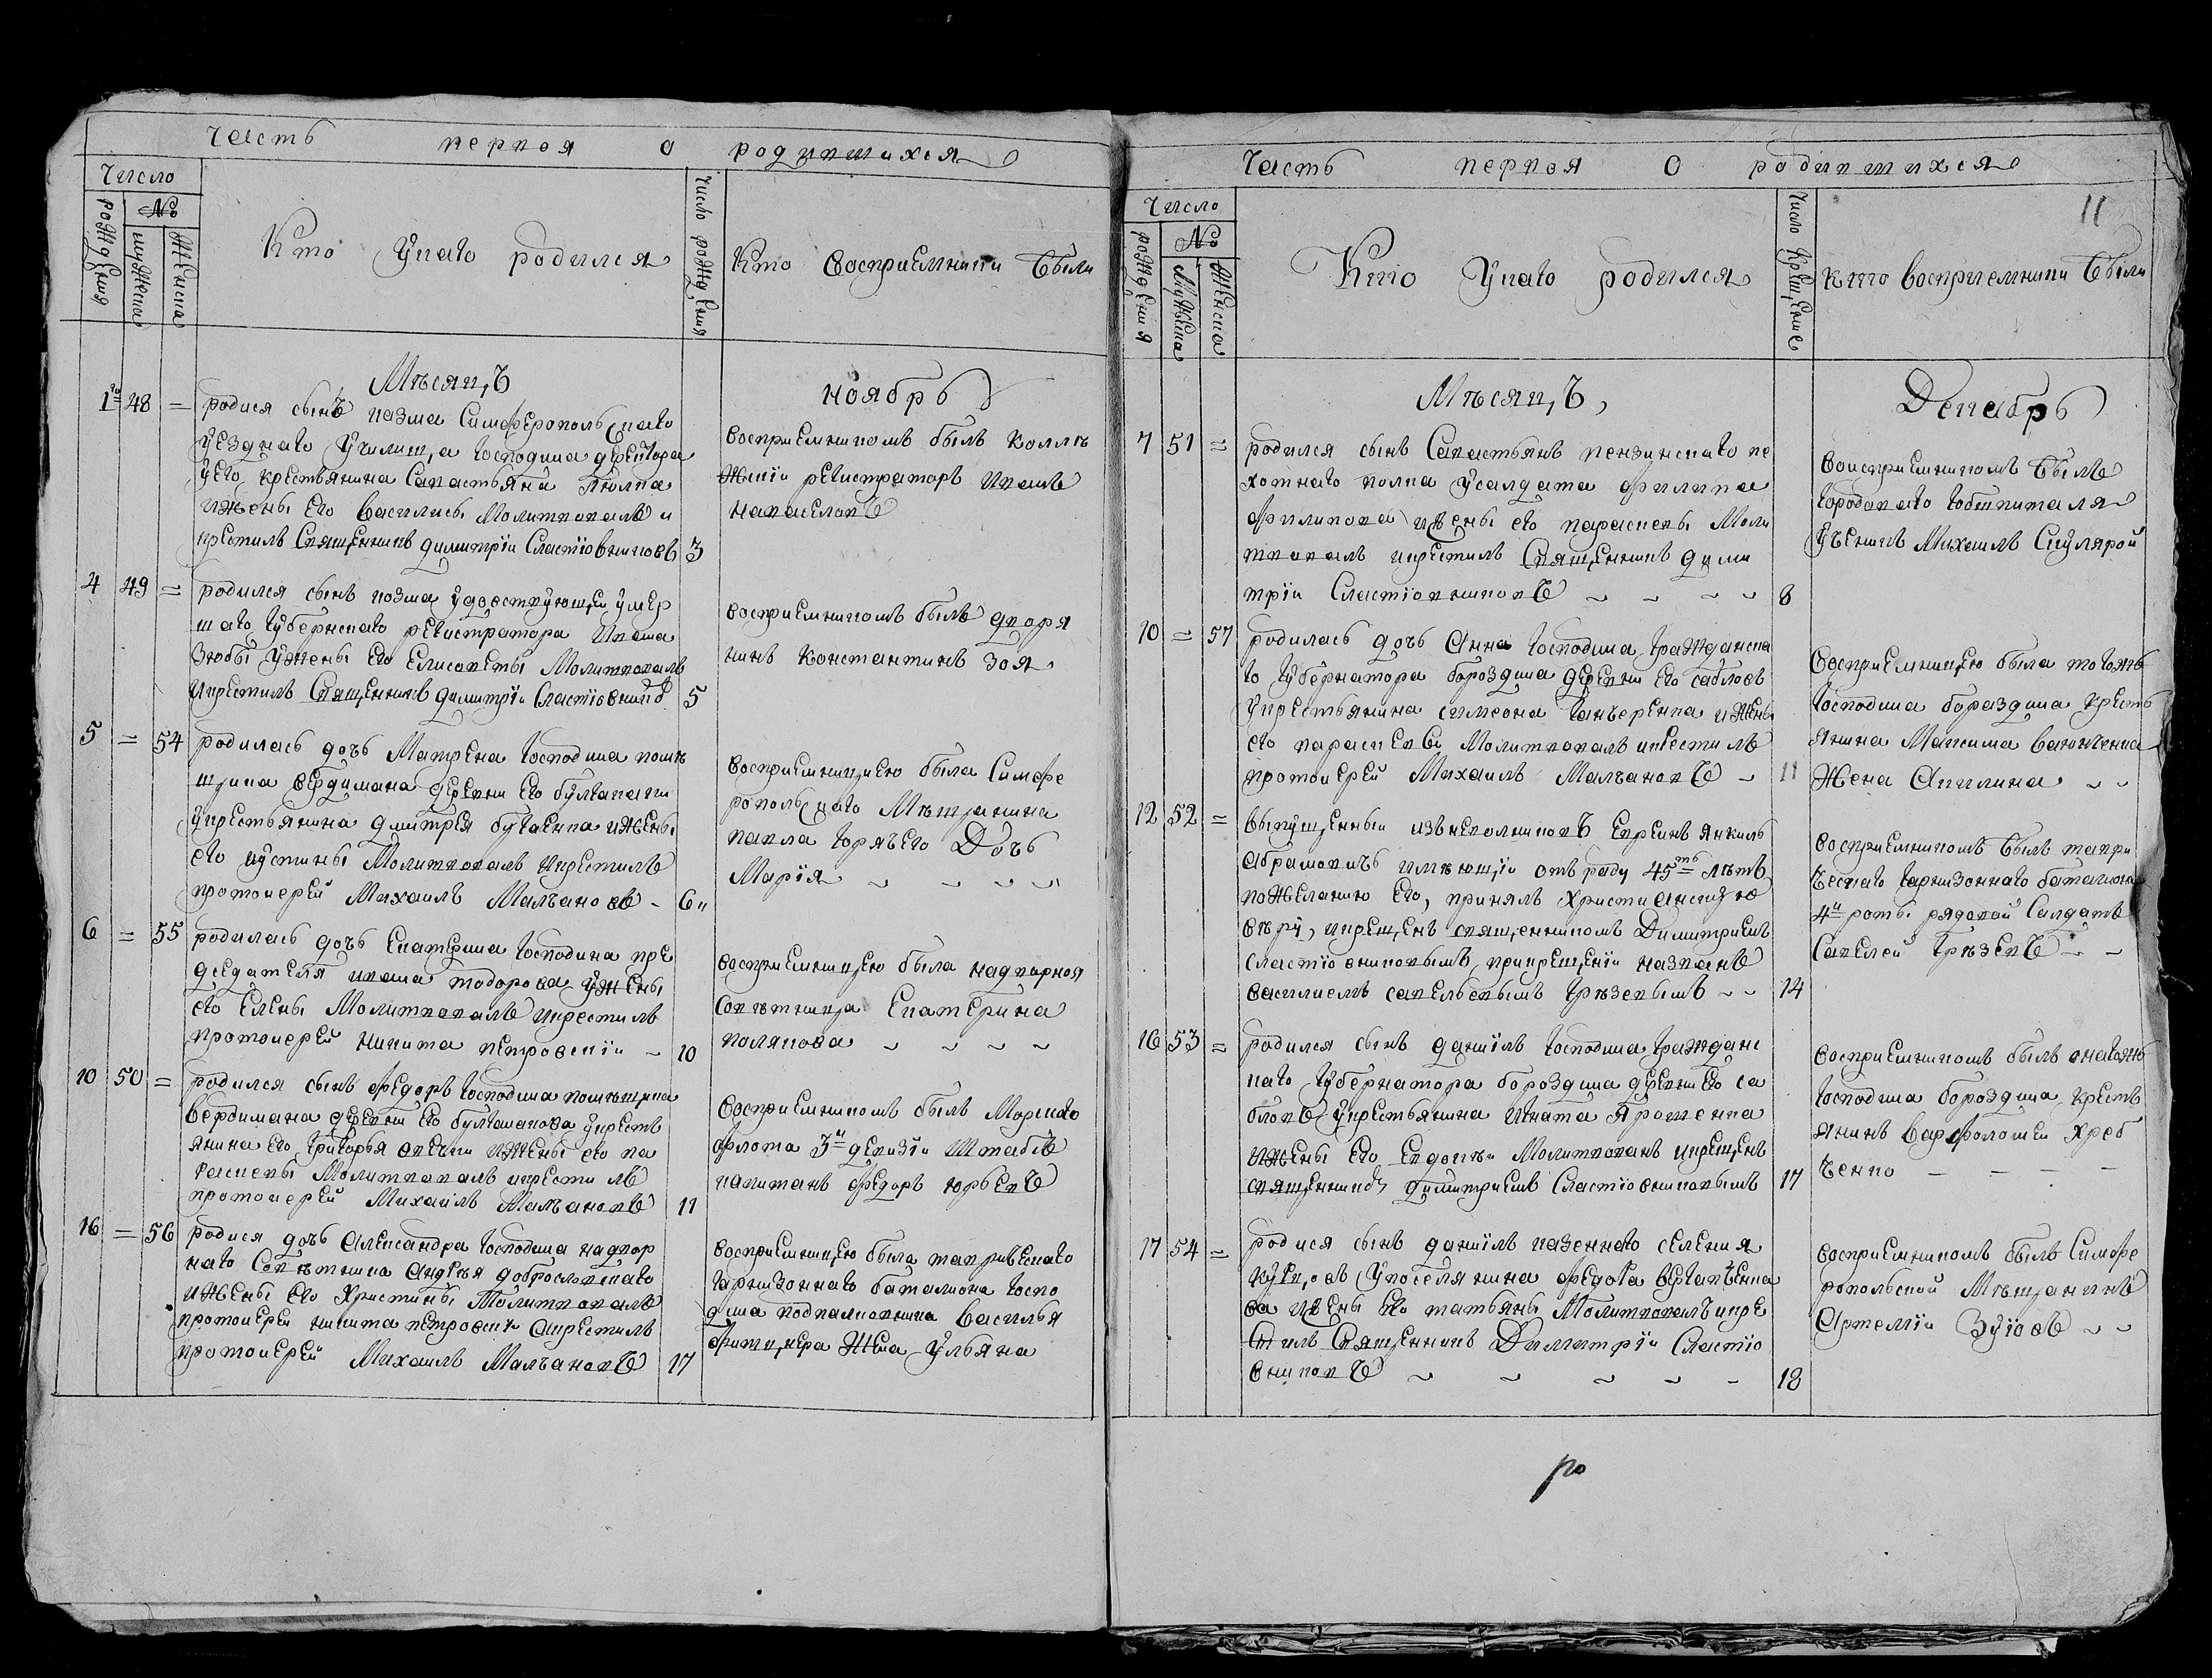 Часть первая о родившихся
Число
№
рождения
мужеска
женска
Кто у каго родился
Число рождения
Кто восприемники были
Месяцъ
ноябрь
1го 48 = родися сынъ казма Симферопольскаго
уезднаго училища господина деректора
у его крестьянина Савастьяна
и жены его василисы Молитвовалъ и
крестилъ Священникъ димитрiи Сластiовниковъ 3
восприемникомъ былъ колле
жскiи регистраторъ иванъ
4 49 = родился сынъ козма у довствующеи умер
шаго губернскаго регистратора ивана
Зюбы у жены его елисаветы Молитвовалъ
и крестилъ Священникъ димитрiи Сластiовников 5
восприемникомъ былъ дворя
нинъ константинъ Зоя
5 = 54 родилась дочъ Матрена господина поме
щика вердимана деревни его
у крестьянина дмитрея бутенка и жены
его иустины Молитвовалъ и крестилъ
протоиереи Михаилъ Малчановъ 6
восприемницею была Симфе
ропольскаго Мещанина
павла горячего Дочъ
Марiя
6 = 55 родилась дочъ екатерина господина пре
дседателя ивана тодорова у жены
его елены Молитвовалъ и крестилъ
протоиереи никита петровскiи 10
восприемницею была надворная
Советница екатерина
полякова
10 50 = родился сынъ федоръ господина помещика
вердимана деревни его у крестъ
янина его григорья и жены его па
раскевы Молитвовалъ и крестилъ
протоиереи Михаилъ Малчановъ 11
восприемникомъ былъ Морскаго
флота 3и девизiи штабсъ
капитанъ федоръ юрьевъ
16 = 56 родися дочъ александра господина надвор
наго Советника андрея доброславскаго
и жены его христины Молитвовалъ
протоиереи никита петровскiи а крестилъ
протоиереи Михаилъ Малчановъ 17
восприемницею была таврическаго
гарнизоннаго баталиона госпо
дина подпалковника василья
жена ульяна
Часть первая о родившихся
11
Число
№
рождения
мужеска
женска
Кто у каго родился
Число крещение
кто восприемники были
Месяцъ
Декабрь
7 51 = родился сынъ Савастьянъ пензинскаго пе
хотнаго полка у салдата филипа
филипова и жены его параскевы Моли
твовалъ и крестилъ Священникъ дими
трiи Сластiовниковъ 8
восприемникомъ былъ
городскаго гобшпиталя
ученикъ Михаилъ
10 = 57 родилась дочъ анна господина гражданска
го губернатора бороздина деревни его саблов
у крестьянина симеона ганчеренка и жены
его параскевы Молитвовалъ и крестилъ
протоиерей Михаилъ Малчановъ 11
восприемницею была тогожъ
господина бораздина крестъ
янина Максима
Жена акилина
12 52 = выпущенныи изъ невольниковъ евреинъ янкиль
абрамовичъ имеющiи отъ роду 45ть летъ
по желанию его, принялъ христианскую
веру, и крещенъ священникомъ Димитриемъ
Сластiовниковымъ, при крещенiи названъ
василиемъ савельевымъ грезевымъ 14
восприемникомъ былъ таври
ческаго гарнизоннаго баталиона
4и роты рядовои Салдатъ
Савелеи грезевъ
16 53 = родился сынъ данiилъ господина граждан
скаго губернатора бороздина деревни его са
бловъ у крестьянина игната ярошенка
и жены его евдокеи Молитвованъ и крещенъ
священником димитриемъ Сластiовниковымъ 17
восприемникомъ былъ онагожъ
господина бороздина крестъ
янинъ варфоломеи хреб
ченко
17 54 = родися сынъ данiилъ казеннаго селения
у поселянина федора
ва и жены его татьяны Молитвовалъ и кре
стилъ Священникъ Димитрiи Сластiо
вниковъ 18
восприемникомъ былъ Симфе
ропольскои Мещанинъ
артемiи Зуiовъ
ро